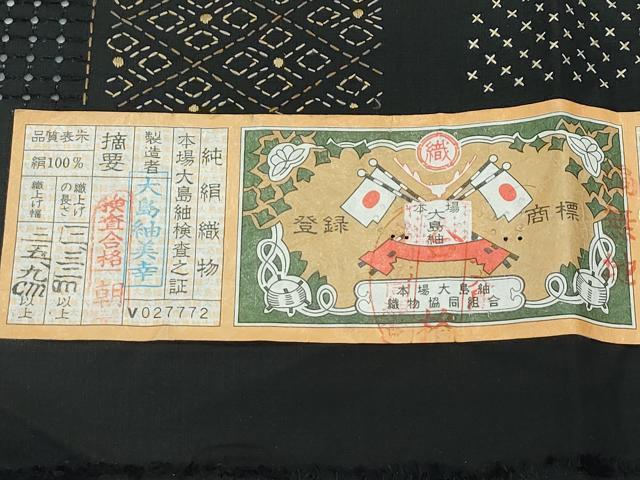 純絹織物
本場大島紬検査之証
製造者
大島紬美幸
V027772
摘要
検査合格
朝
品質表示
絹100%
織上げの長さ
一二、三m以上
織上げ幅
三五、九cm以上
織
登録
商標
本場
大島
紬
本場大島紬
織物協同組合